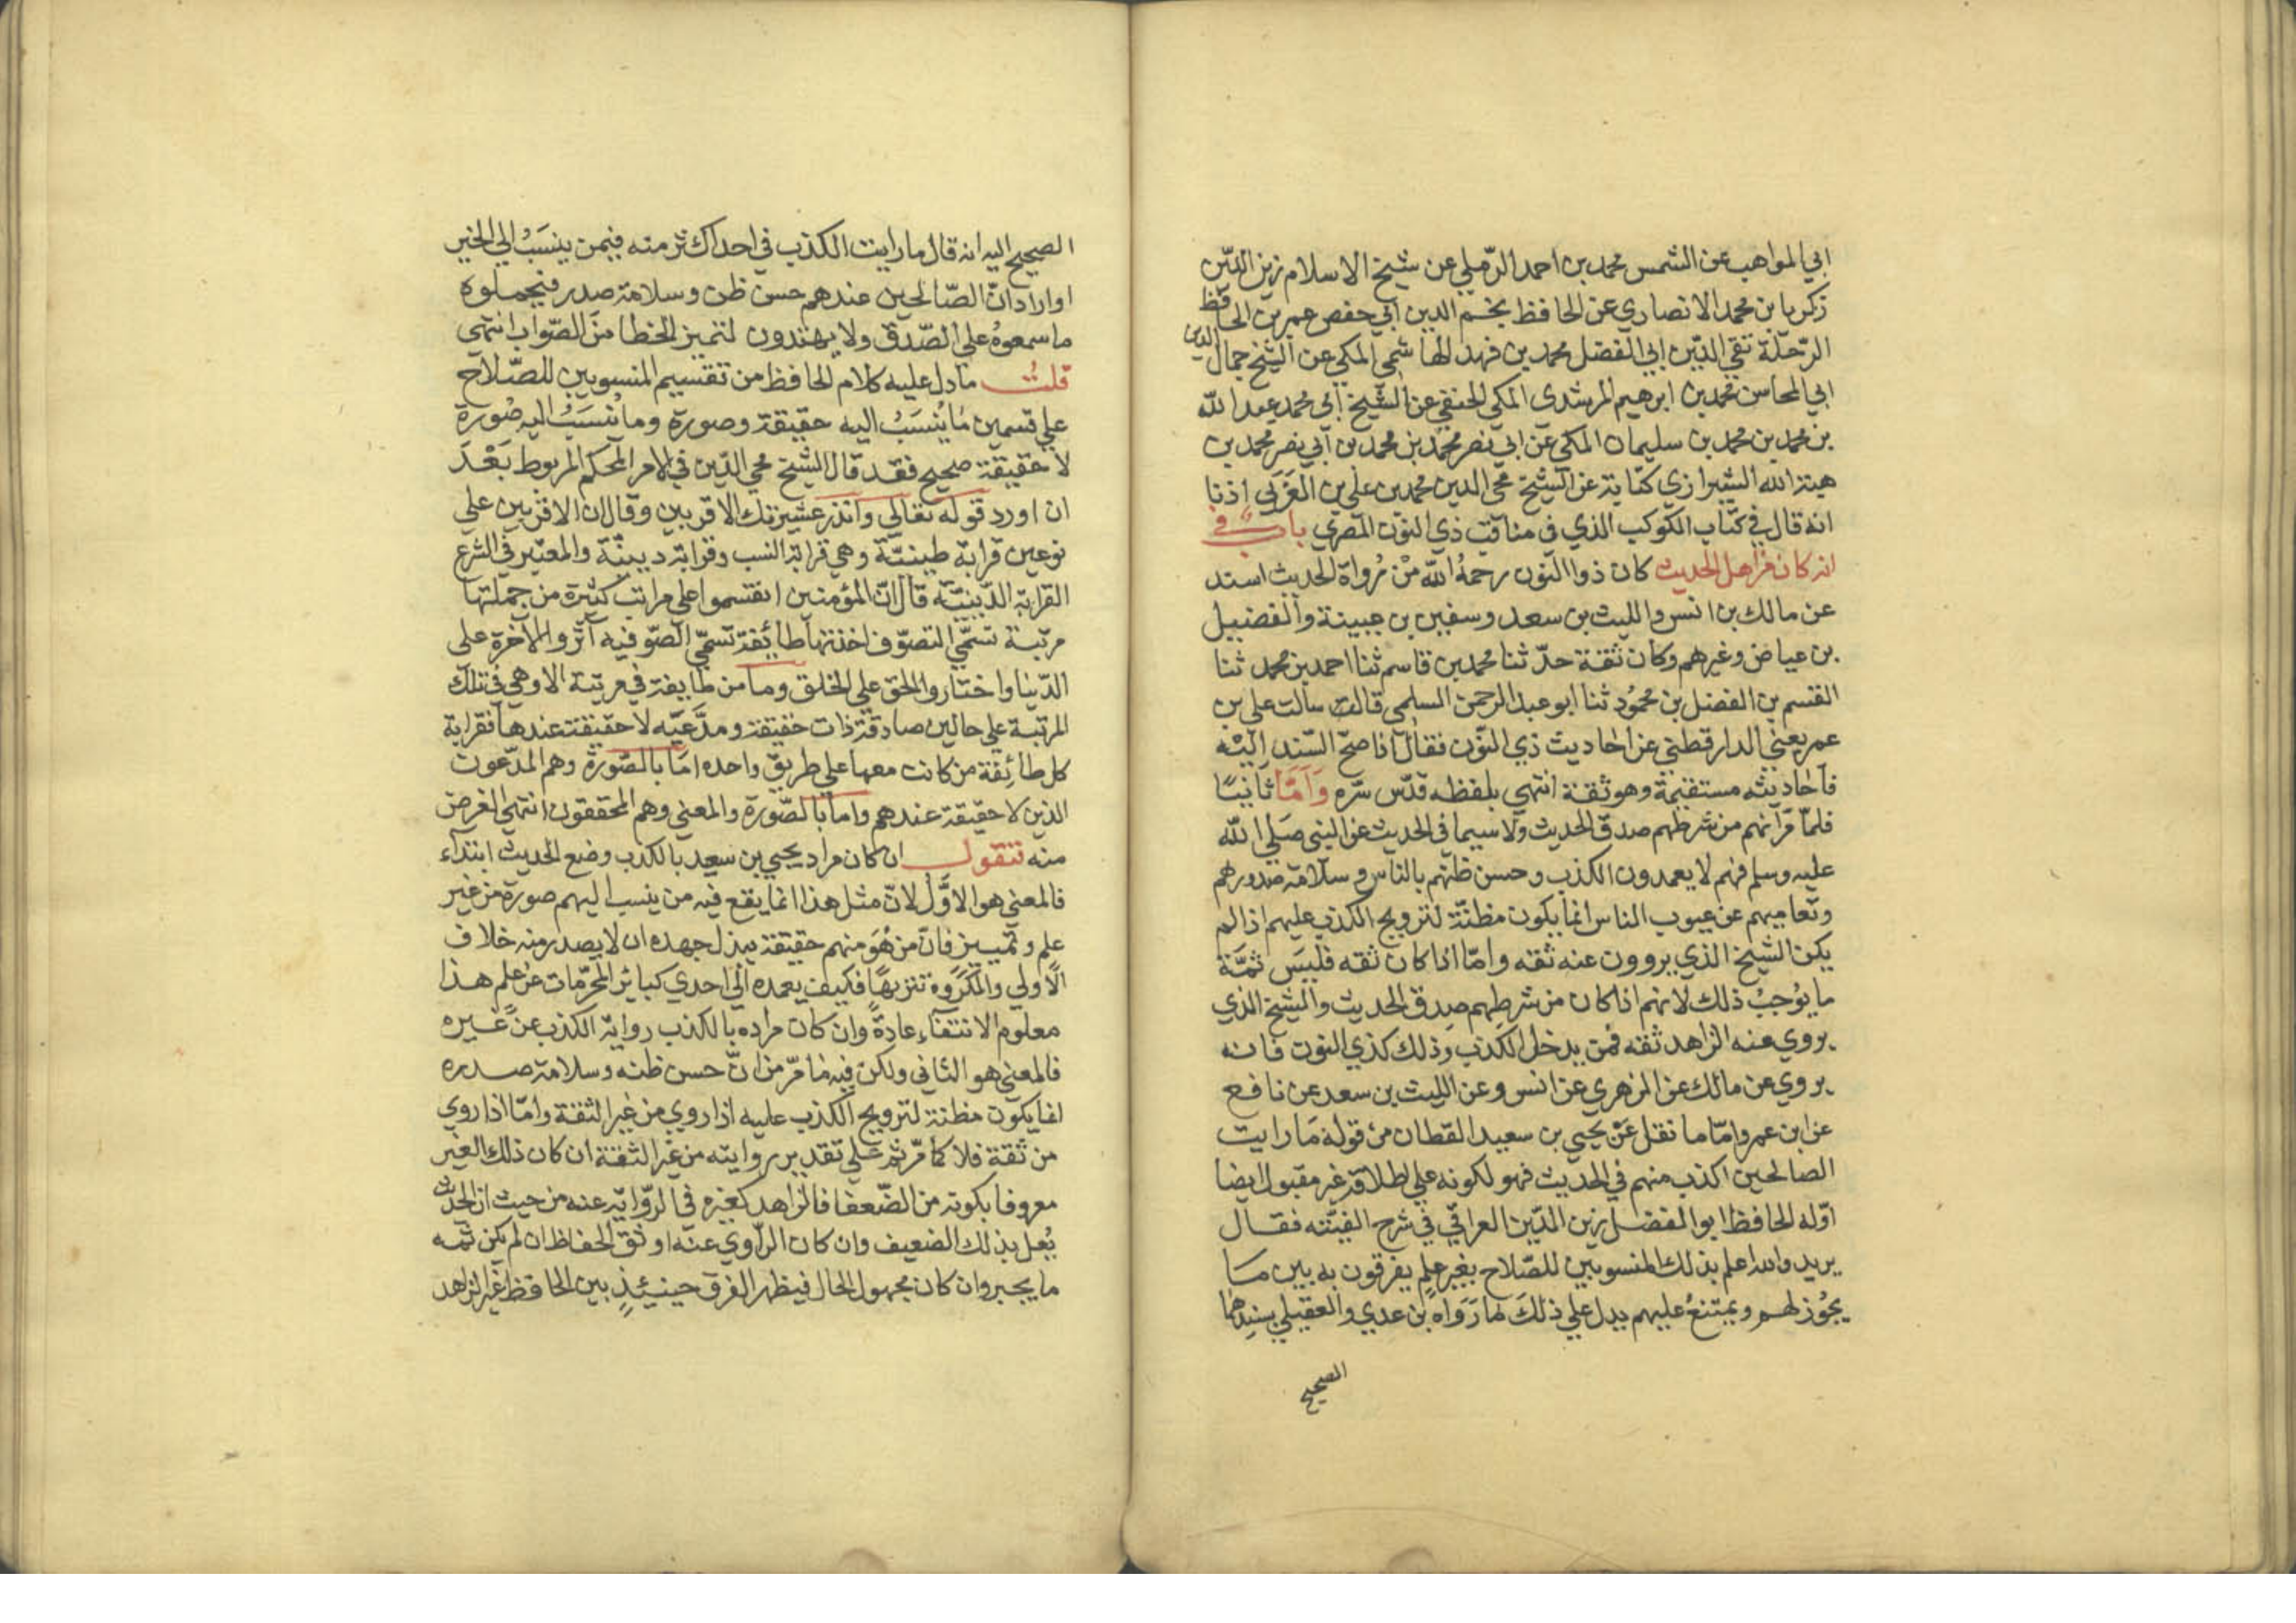 ابي المواهب عن الشمس محمد بن احمد الرّملي عن شيخ الاسلام زين الدّين
زكريا بن محمد الانصاري عن الحافظ نجم الدين ابي حفص عمر بن الحافظ
الرّحلة تقي الدّين ابي الفضل محمد بن فهد الهاشمي المكي عن الشيخ جمال الدين
ابي المحاسن محمد بن ابرهيم المرشدي المكي الحنفي عن الشّيخ ابي محمد عبد الله
بن محمد بن محمد بن سليمان المكي عن ابي نصر محمد بن محمد بن ابي نصر محمد بن
هبة الله الشيرازي كتابة عن الشيخ محي الدين محمد بن علي بن العربي اذنا
انه قال في كتاب الكوكب الذي في مناقب ذي النون المصري باب في
انه كان من اهل الحديث كان ذوا النون رحمهُ الله مِنْ رُواة الحديث اسند
عن مالك بن انس والليث بن سعد وسفين بن عيينة والفضيل
بن عياض وغيرهم وكان ثقة حدّثنا محمد بن قاسم ثنا احمد بن محمد ثنا
القسم بن الفضل بن محمُود ثنا ابو عبد الرحمن السلمي قالت سالت علي بن
عمر يعني الدارقطني عن احاديث ذي النّون فقال اذا صحّ السّند اليْه
فأحاديثه مستقيمة وهو ثقة انتهى بلفظه قدّس سّره وَاَمَّا ثانيًا
فلمّا مَرّ انهم من شرطهم صدق الحديث ولا سيما في الحديث عن النبي صَلى الله
عليه وسلم فهم لا يعمدون الكذب وحسن ظنهم بالناس وسلامة صدورهم
وتعاميهم عن عيوب الناس انما يكون مظنّة لترويج الكذب عليهم اذا لم
يكن الشيخ الذي يروون عنه ثقه وامّا اذا كان ثقه فليسَ ثمَّة
ما يوُجبُ ذلك لانهم اذا كان من شرطِهم صِدق الحديث والشيخ الذي
يروي عنه الزاهد ثقه فمن يدخل الكذب وذلك كذي النون فانه
يروي عن مالك عن الزهري عن انس وعن الليث بن سعد عن نافع
عن ابن عمر وامّا ما نقل عَنْ يحيي بن سعيد القطان من قوله مَا رايت
الصالحين اكذب منهم في الحديث فهو لكونه علي اطلاقه غير مقبول ايضا
اوّله الحافظ ابو الفضل زين الدّين العراقي في شرح الفيّته فقال
يريد والله اعلم بذلك المنسوبين للصّلاح بغير علم يفرقون به بين مَا
يجُوز لهم ويمتنعُ عليهم يدل علي ذلكَ مَا رَوَاه بن عدي والعقيلي بسندِهما
الصحيح
الصحيح اليه انه قال ما رايت الكذب في احد اكثر منه فيمن ينسَبُ الي الخير
او اراد انّ الصّالحين عندهم حسن ظن وسلامة صدر فيحملوه
ما سمعوهُ علي الصّدق ولا يهتدون لتميز الخطا منَ الصّواب انتهى
قلتُ ما دل عليه كلام الحافظ من تقسيم المنسوبين للصّلاح
علي قسمين مَا يُنسَبُ اليه حقيقة وصورة وما يُنسَبُ اليه صُورة
لا حقيقة صحيح فقد قال الشيخ محي الدّين في الامر المحكم المربوط بَعْدَ
ان اورد قوله تعالي وانذر عشيرتك الاقربين وقال ان الاقربين علي
نوعين قرابة طينيّة وهي قرابة النسب وقرابة دينيّة والمعتبر في الشرع
القرابة الدّينيّة قال انّ المؤمنين انقسموا علي مراتب كثيرة من جملتها
مرتبة تسمّي التصوّف اخذتها طائفة تسمّي الصّوفيه آثروا الآخرة على
الدّنيا واختاروا الحق علي الخلق وما من طايفة في مرتبة الا وهي في تلك
المرتبة علي حالين صادقة ذات حقيقة ومدّعيّه لا حقيقة عندها فقرابة
كل طائفة من كانت معها علي طريق واحده امّا بالصّورة وهم المدّعون
الذين لا حقيقة عندهم واما بالصّورة والمعني وهم المحققون انتهي الغرض
منه فنقول ان كان مراد يحيي بن سعيد بالكذب وضع الحديث ابتدآء
فالمعني هو الاوَّل لانّ مثل هذا انما يقع فيه من ينسب اليهم صورة من غير
علم وتمييز فانّ من هُوَ منهم حقيقة يبذل جهده ان لا يصدر منه خلاف
الاولي والمكرَوه تنزيهًا فكيف يعمده الي احدي كبائر المحرّمات عن علم هذا
معلوم الانتفاء عادةً وان كان مراده بالكذب رواية الكذب عن غيره
فالمعني هو الثاني ولكن فيه مَا مرّ من انّ حسن ظنه وسلامة صدره
انما يكون مظنة لترويج الكذب عليه اذا روي من غير الثقة وامّا اذا روي
من ثقة فلا كما مرّ ثم علي تقدير روايته من غير الثقة ان كان ذلك الغير
معروفا بكونه من الضّعفا فالزاهد كغيره في الرّواية عنه من حيث ان الحديث
يُعل بذلك الضعيف وان كان الرّاوي عنه اوثق الحفاظ ان لم يكن ثمّه
ما يجبر وان كان مجهول الحال فيظهر الفرق حينئذٍ بين الحافظ غير الزاهد